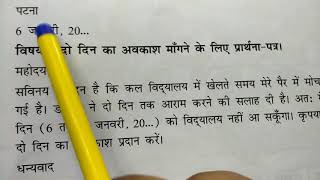 पटना
6 20...
दो दिन का अवकाश माँगने के लिए प्रार्थना-पत्र।
महोदय
सविनय है कि कल विद्यालय में खेलते समय मेरे पैर में मोच
गई है। ने दो दिन तक आराम करने की सलाह दी है। अतः
दिन (6 जनवरी, 20...) को विद्यालय नहीं आ सकूँगा।
दो दिन का प्रदान करें।
धन्यवाद